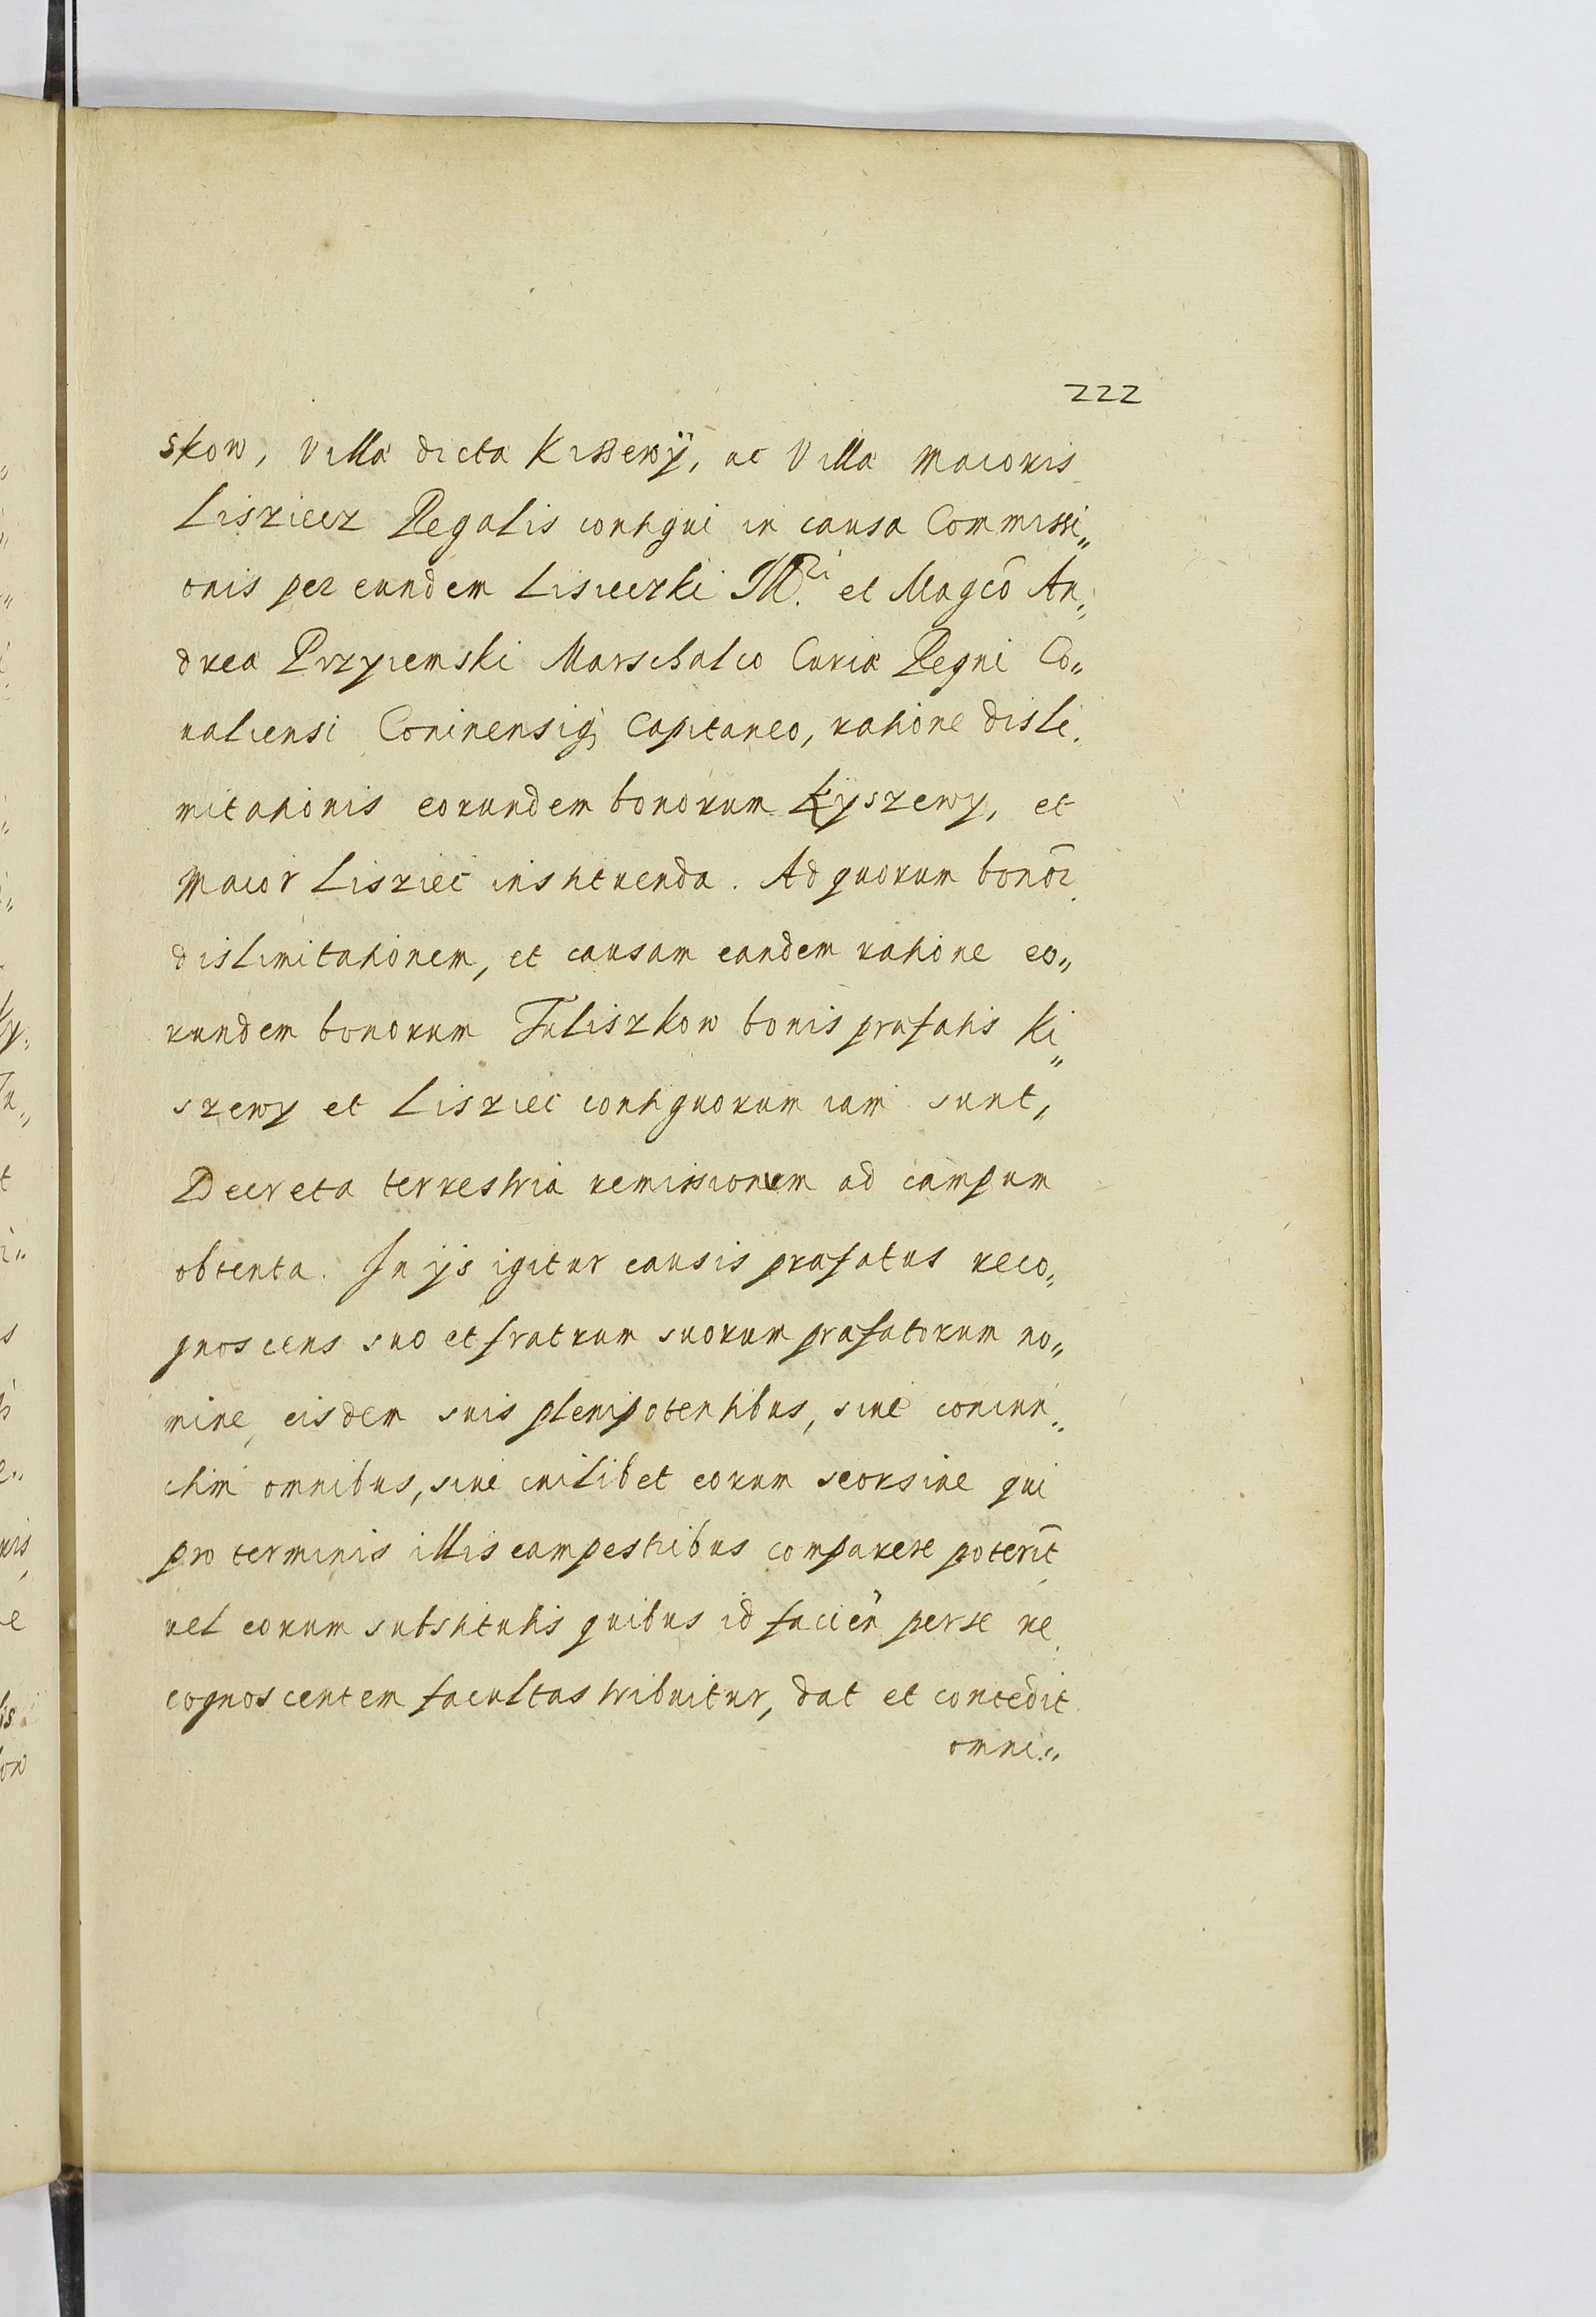 222
skow, Villa dicta Kissewÿ, ac Villa Maioris
Lisziecz Regalis contigui in causa Commissi„
onis per eundem Lisieczki M.ci et Magco An„
drea Przyiemski Marschalco Curia Regni Co„
ualiensi Coninensiq; Capitaneo, ratione disli„
mitationis eorundem bonorum Kÿszewy, et
Maior Lisziec instituenda. Ad quorum bonor
dislimitationem, et causam eandem ratione eo„
rundem bonorum Tuliszkow bonis prafatis Ki„
szewy et Lisziec contiguorum iam sunt,
Decreta terrestria remissionem ad campum
obtenta. In ijs igitur causis prafatus reco„
gnoscens suo et fratrum suorum prafatorum no„
mine, eisdem suis plenipotentibus, siue coniun„
ctim omnibus, siue cuilibet eorum seorsiue qui
pro terminis illis campestribus comparere poterit
uel eorum substitutis quibus id facien perse re„
cognoscentem facultas tribuitur, dat et concedit
omni„